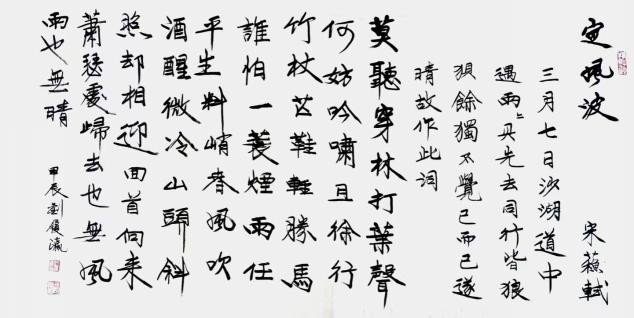 定風波 宋蘇軾
三月七日沙湖道中
遇雨〻具先去同行皆狼
狽餘獨不覺已而已遂
晴故作此詞
莫聽穿林打葉聲
何妨吟嘯且徐行
竹杖芒鞋輕勝馬
誰怕一蓑煙雨任
平生料峭春風吹
酒醒微冷山頭斜
照却相迎回首向来
蕭瑟處歸去也無風
雨也無晴
甲辰劉